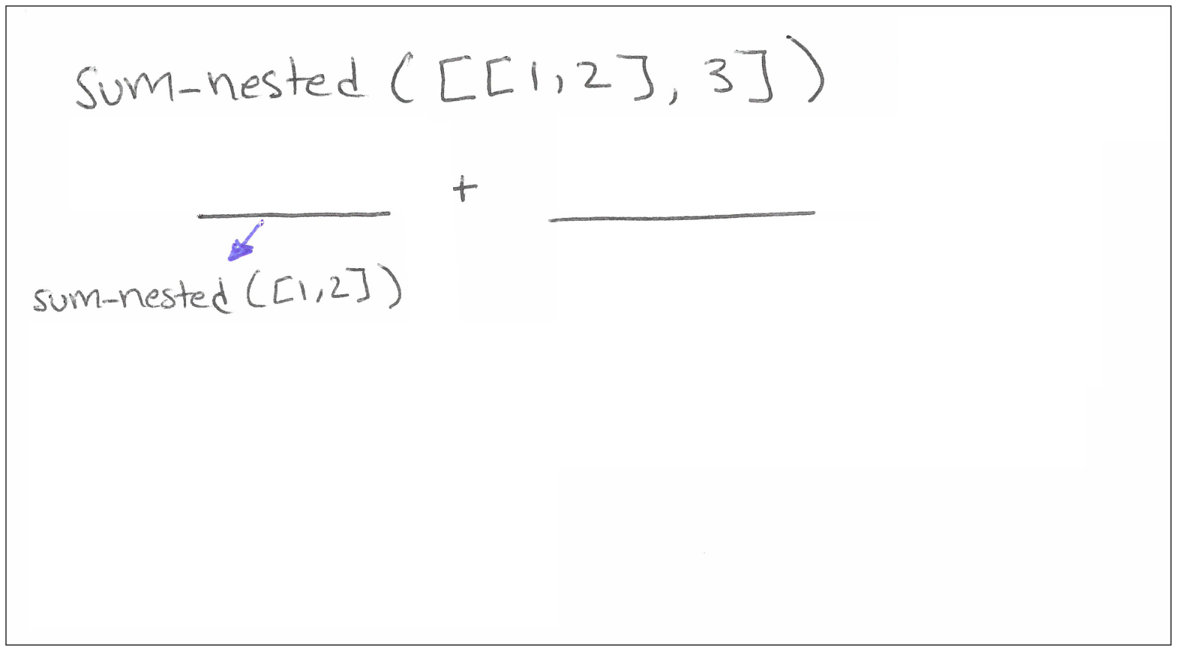 sum-nested ([[1,2], 3])
+
sum-nested ([1,2])